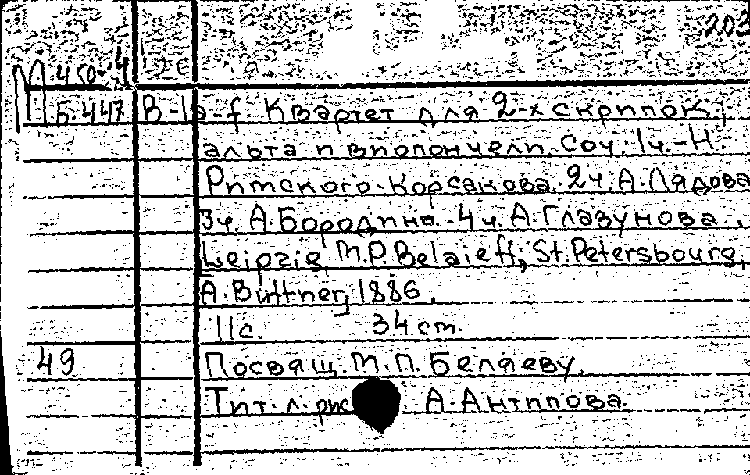 203
М 450-4
Б.447 B-la-f. Квартет для 2-х скрипок,
альта и виолончели. Соч: 1ч.-Н.
Римского-Корсакова 2ч. А.Лядова
3ч. А.Бородина-4ч. А.Глазунова.
Leipzig, M.P.Belaieff; St.Petersbourg,
A.Büttner, 1886.
11с. 34 cm.
49 Посвящ. М.П. Беляеву.
Тит.л.рис. А.Антипова.